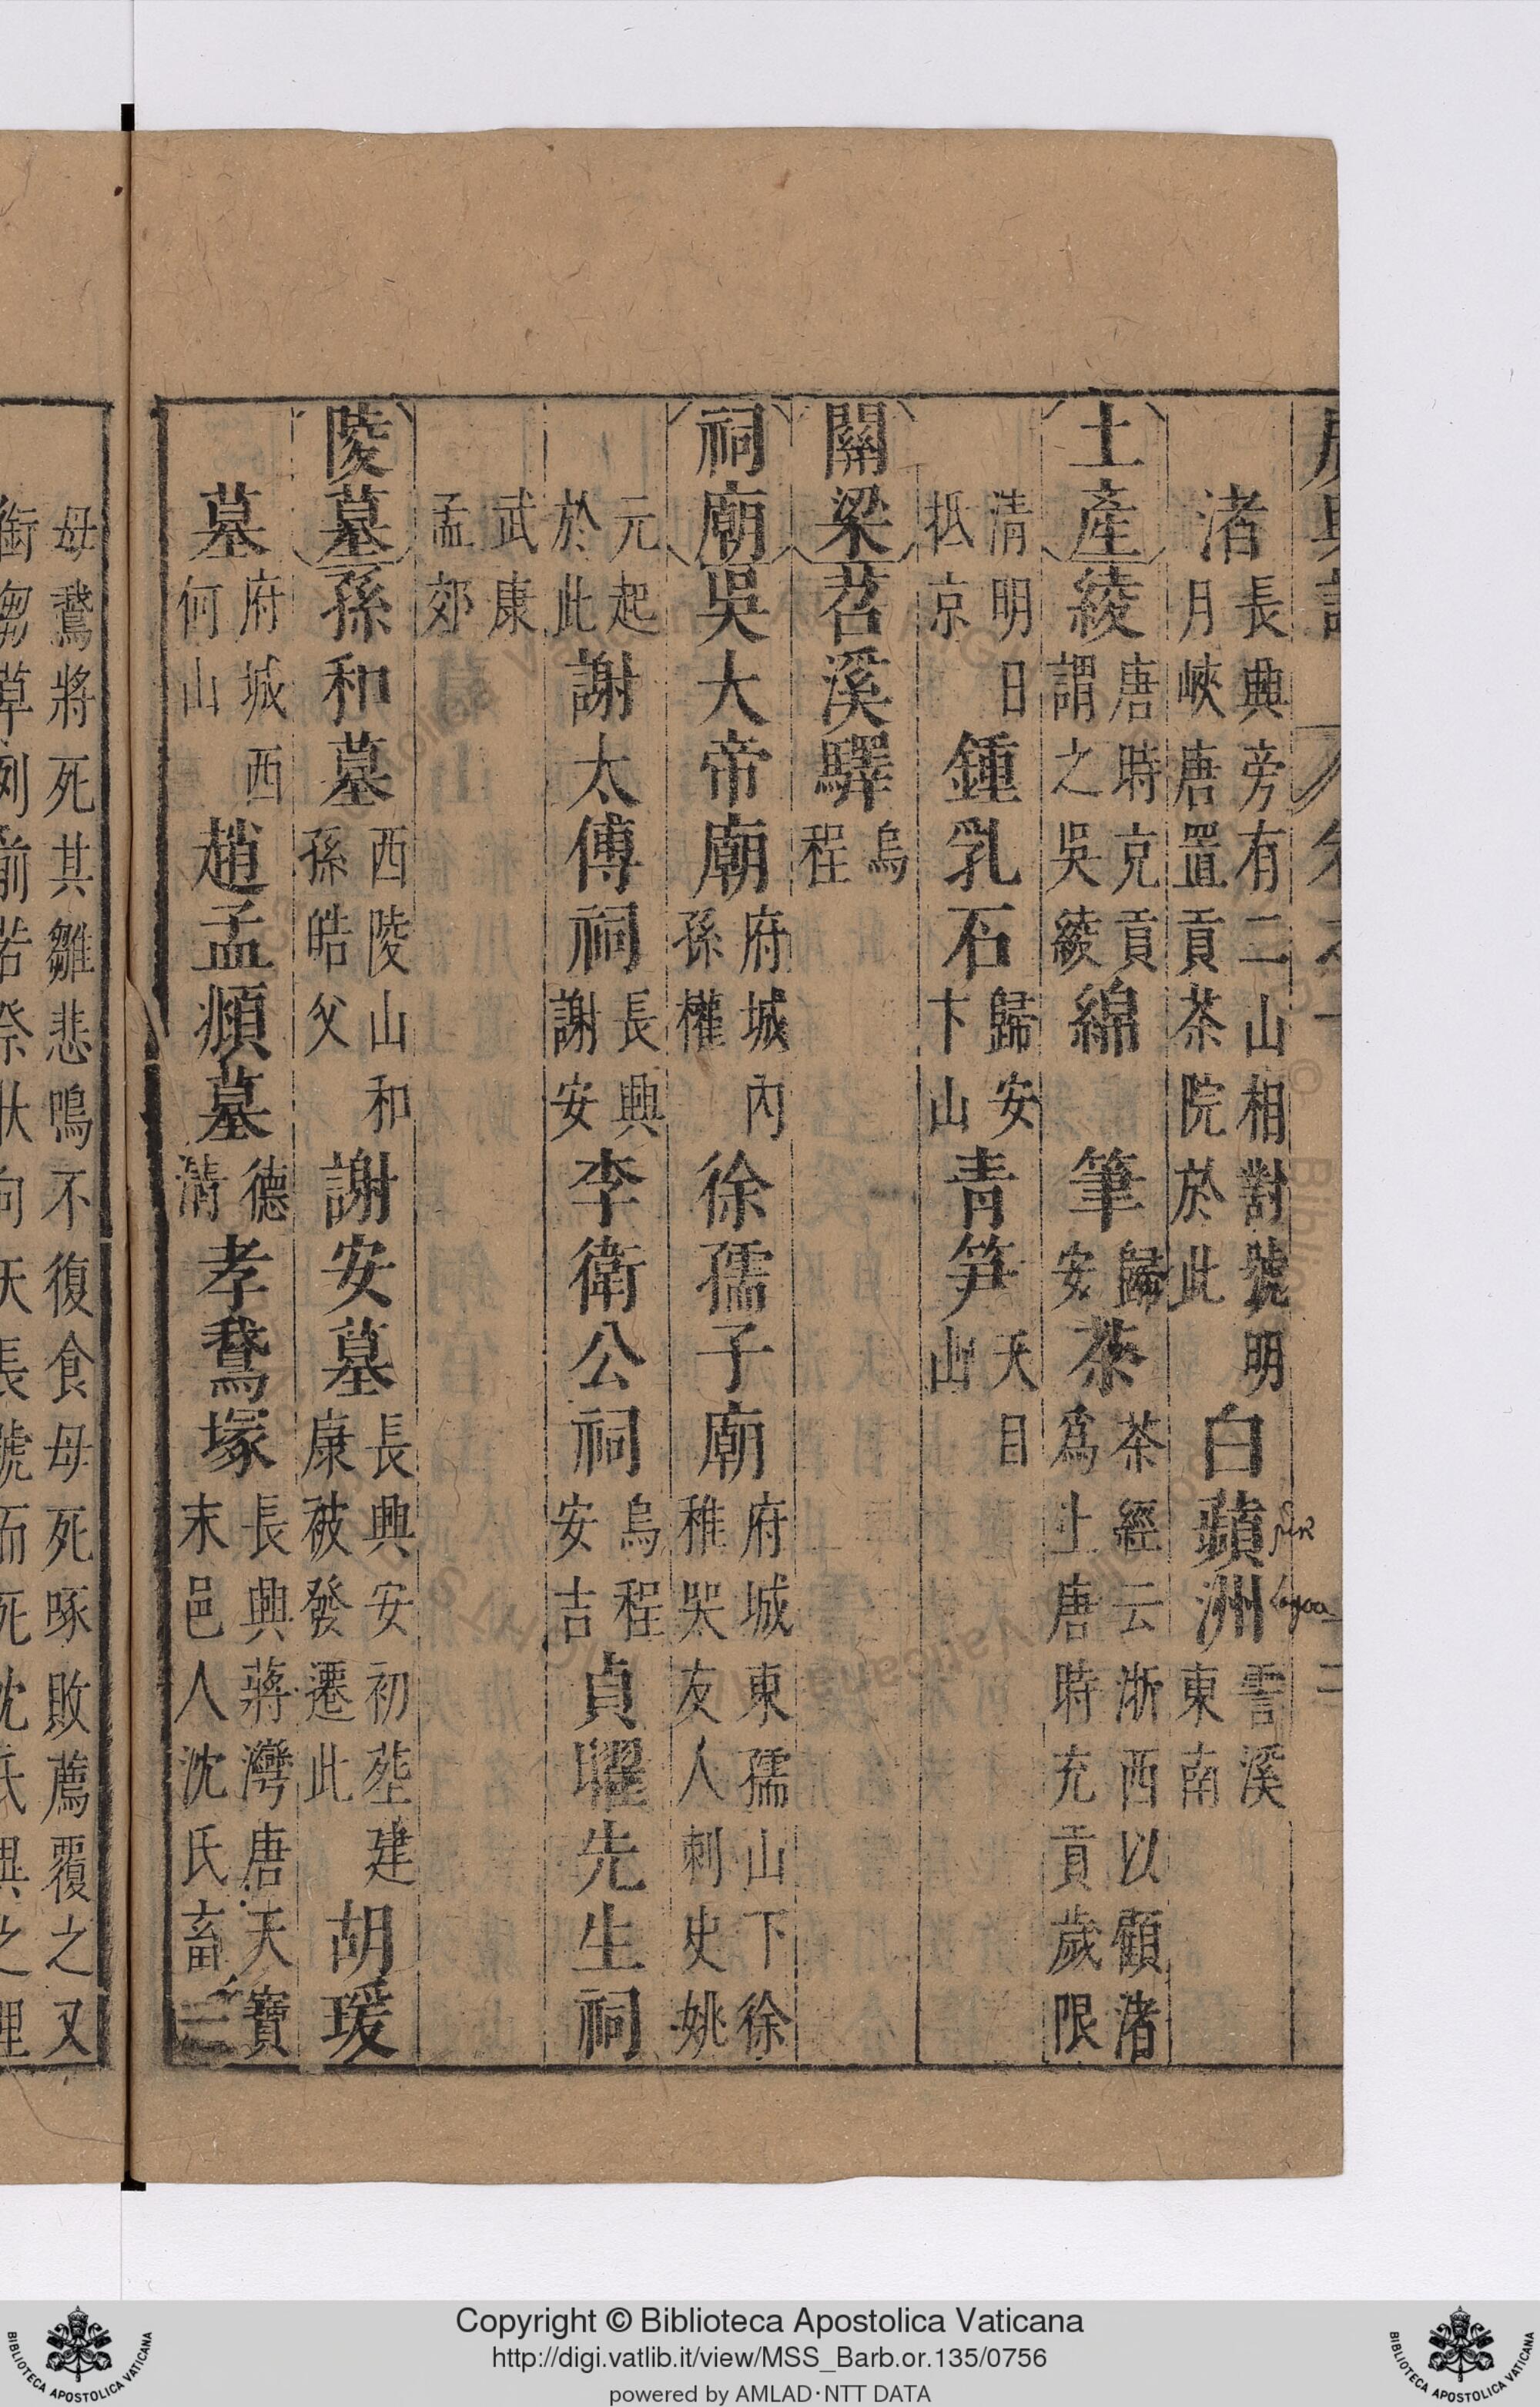 渚長興旁有二山相對號明月峽唐置貢茶院於此白蘋洲霅溪東南
土產綾唐時克貢謂之吳綾綿筆歸安茶茶經云浙西以顧渚為上唐時充貢歲限
清明日抵京鍾乳石歸安卞山青笋天目山
關梁苕溪驛烏程
祠廟吳大帝廟府城內孫權徐孺子廟府城東孺山下徐稚哭友人刺史姚
元起於此謝太傅祠長興謝安李衛公祠烏程安吉貞曜先生祠
武康孟郊
陵墓孫和墓西陵山和孫皓父謝安墓長興安初塟建康被發遷此胡瑗
墓府城西何山趙孟頫墓德清孝鵞塚長興蔣灣唐天寶末邑人沈氏畜
母鵞將死其雛悲鳴不復食母死啄敗薦覆之又
Copyright © Biblioteca Apostolica Vaticana
http://digi.vatlib.it/view/MSS_Barb.or.135/0756
powered by AMLAD·NTT DATA
BIBLIOTECA APOSTOLICA VATICANA
BIBLIOTECA APOSTOLICA VATICANA